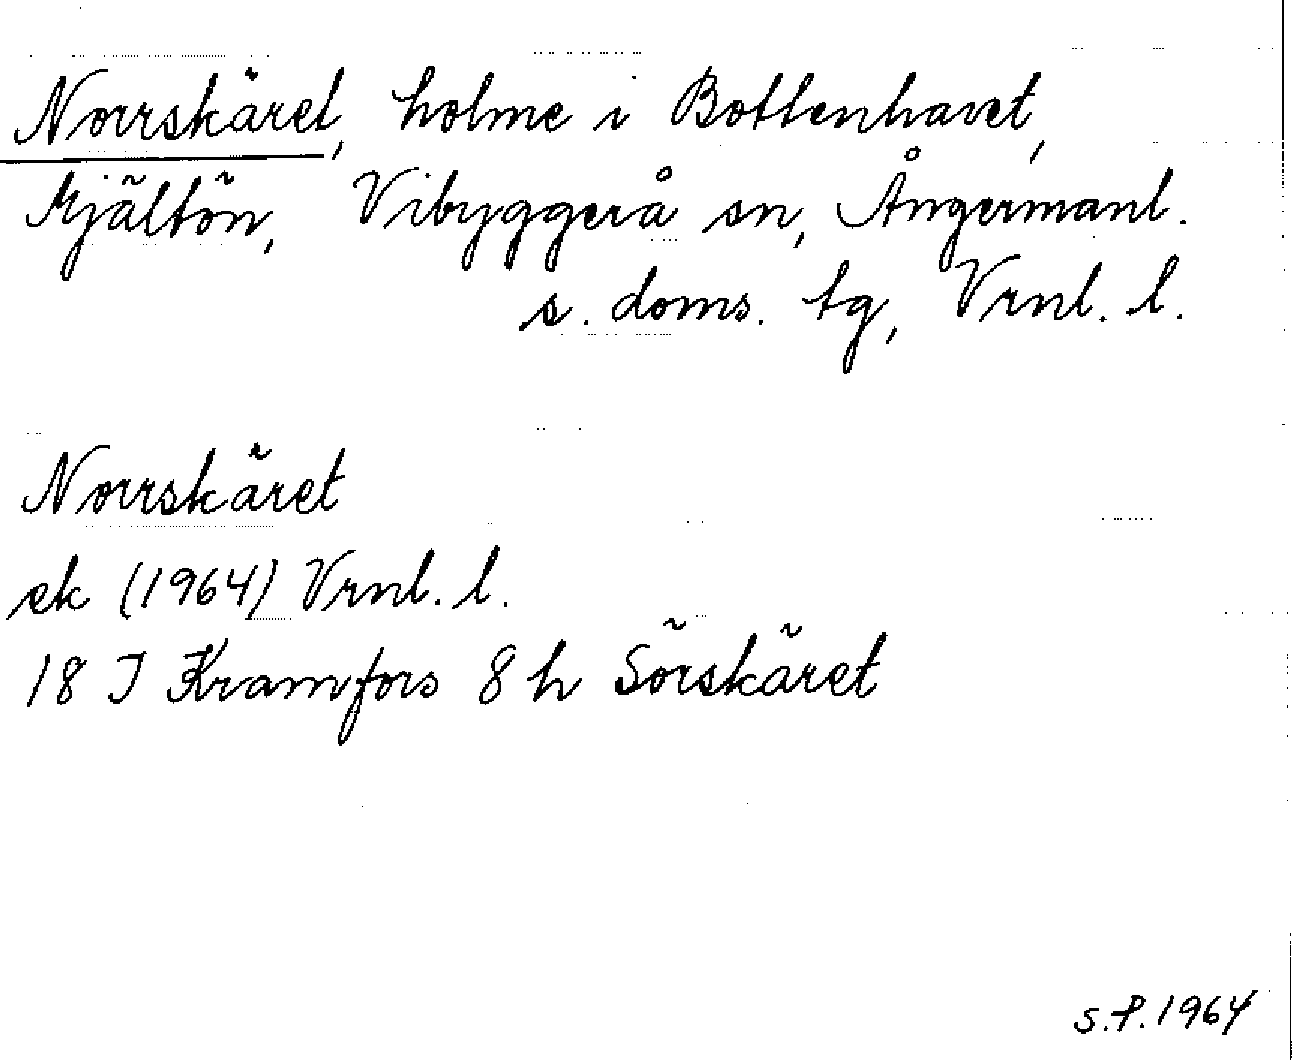 Norrskäret, holme i Bottenhavet,
Mjältön, Vibyggerå sn, Ångermanl.
s. doms. tg, Vrnl. l.
Norrskäret
ek (1964) Vrnl. l.
18 J Kramfors 8 h Sörskäret
S.P. 1964